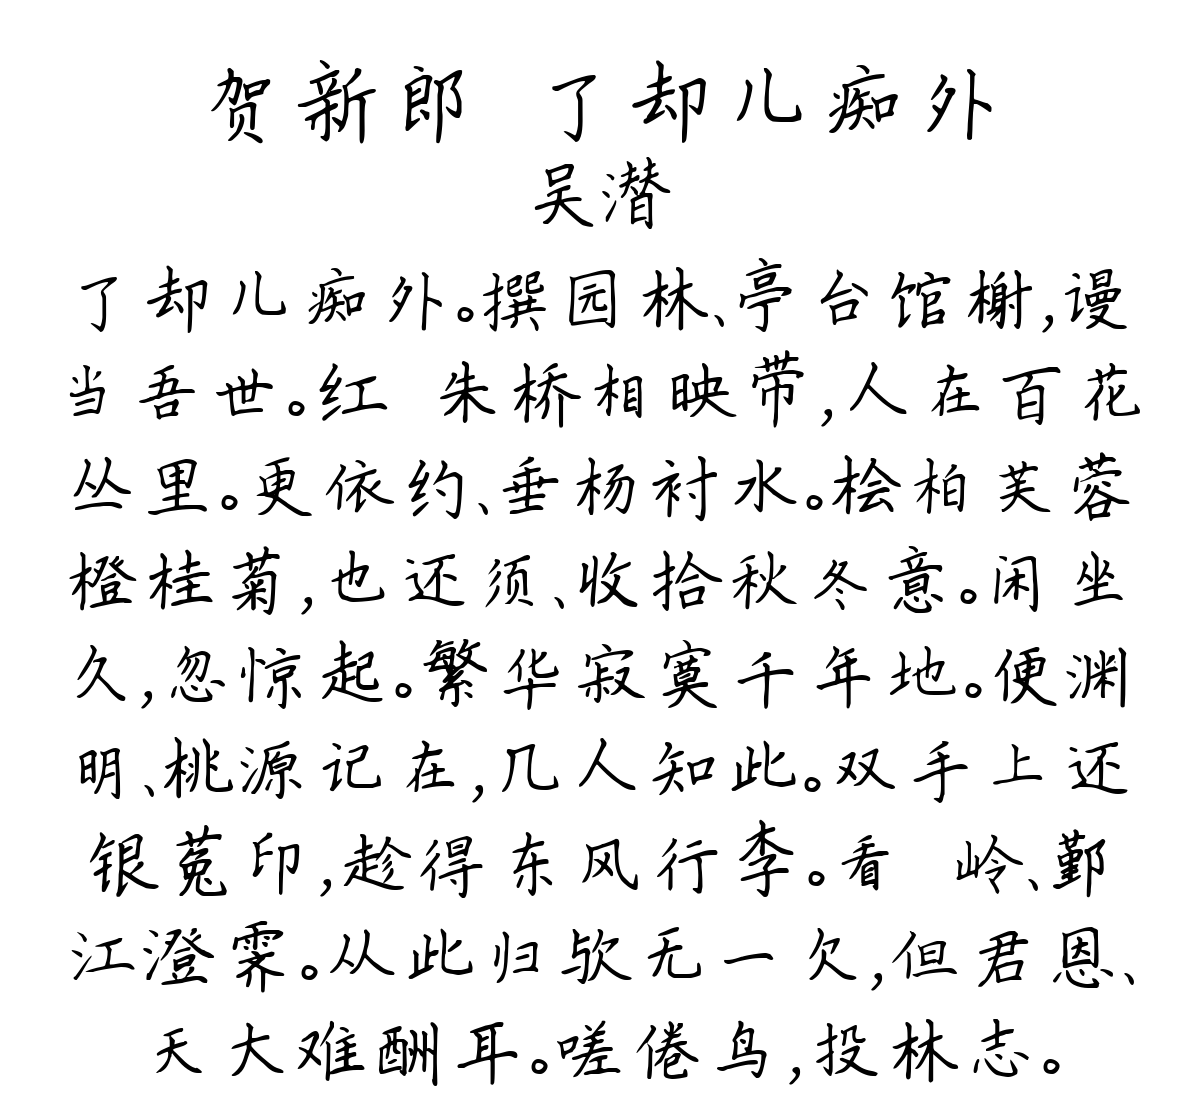 贺新郎 了却儿痴外
吴潜
了却儿痴外。撰园林、亭台馆榭,谩
当吾世。红 朱桥相映带,人在百花
丛里。更依约、垂杨衬水。桧柏芙蓉
橙桂菊,也还须、收拾秋冬意。闲坐
久,忽惊起。繁华寂寞千年地。便渊
明、桃源记在,几人知此。双手上还
银菟印,趁得东风行李。看 岭、鄞
江澄霁。从此归欤无一欠,但君恩、
天大难酬耳。嗟倦鸟,投林志。